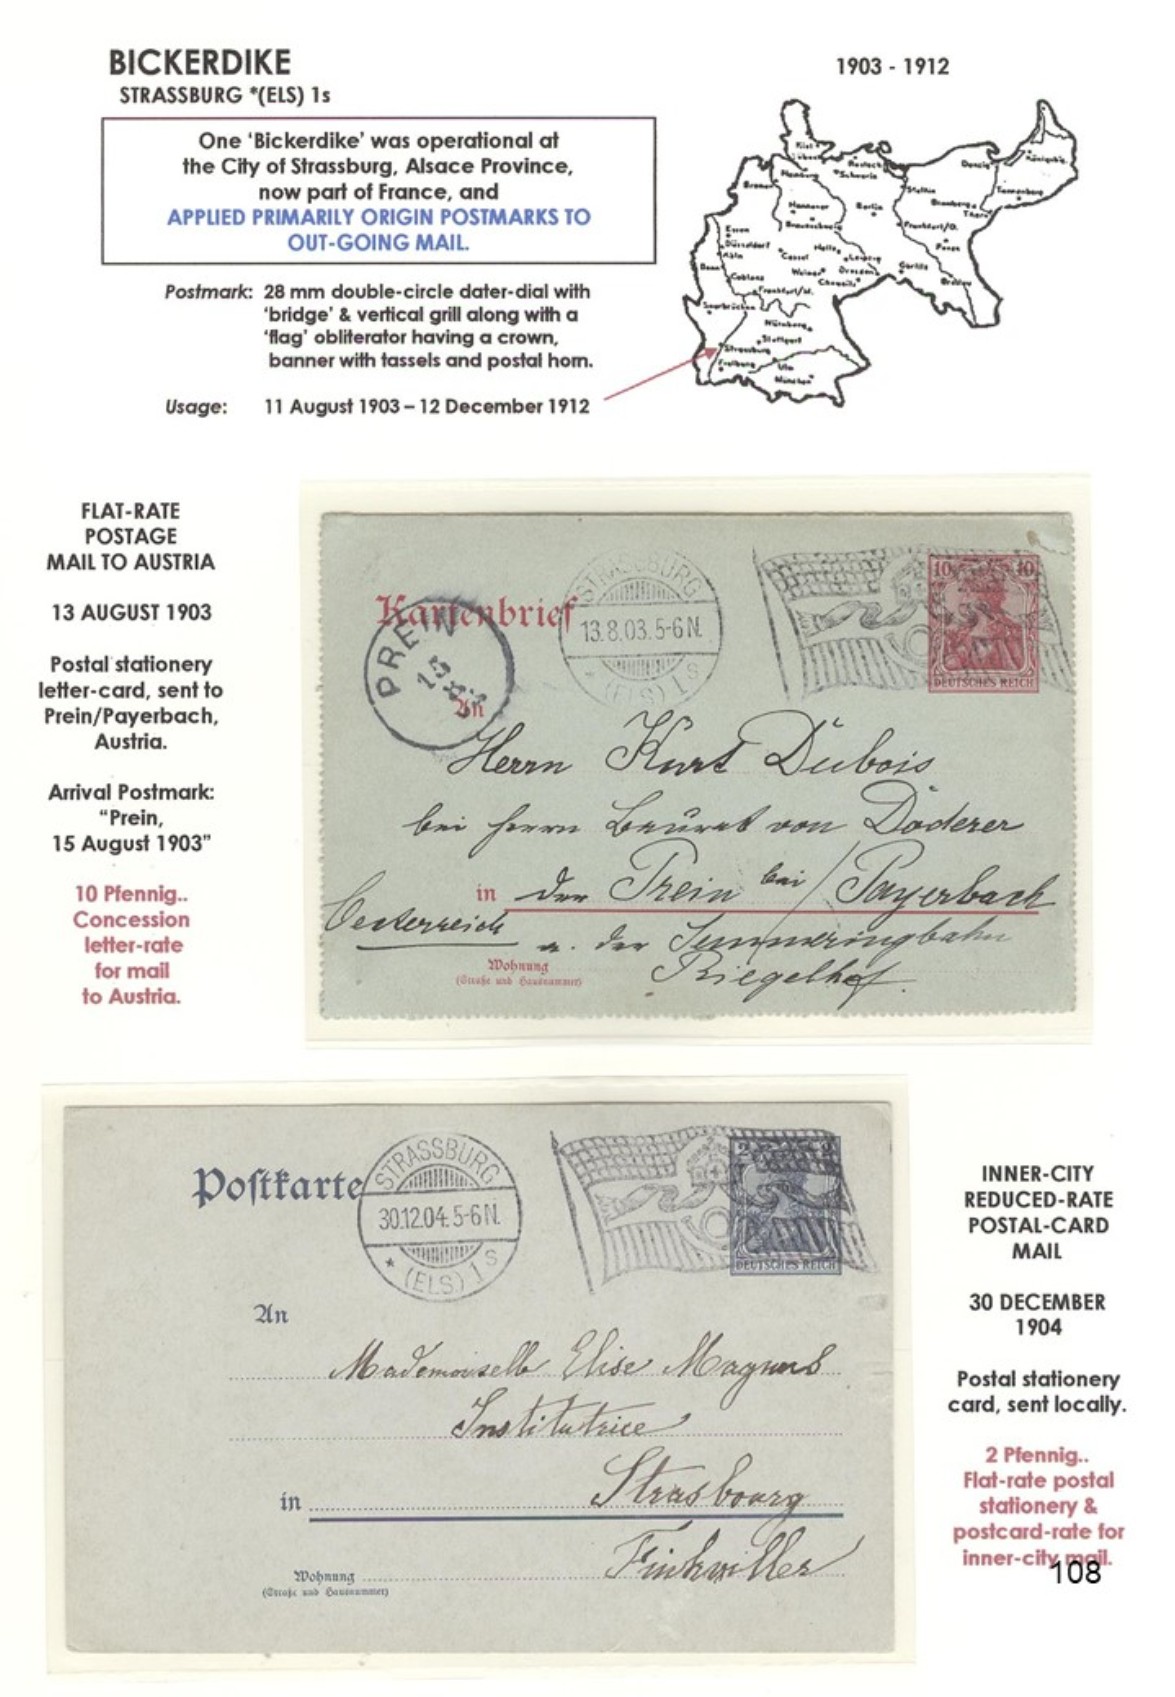 BICKERDIKE
STRASSBURG *(ELS) 1s
1903 - 1912
One ‘Bickerdike’ was operational at
the City of Strassburg, Alsace Province,
now part of France, and
APPLIED PRIMARILY ORIGIN POSTMARKS TO
OUT-GOING MAIL.
Postmark: 28 mm double-circle dater-dial with
‘bridge’ & vertical grill along with a
‘flag’ obliterator having a crown,
banner with tassels and postal horn.
Usage: 11 August 1903 – 12 December 1912
Kiel
Rostock
Schwerin
Hamburg
Bremen
Stettin
Danzig
Königsbg.
Tannenberg
Bromberg
Thorn
Hannover
Berlin
Braunschweig
Frankfurt/O.
Posen
Essen
Düsseldorf
Köln
Cassel
Halle
Leipzig
Görlitz
Bonn
Coblenz
Weimar
Dresden
Chemnitz
Breslau
Frankfurt/M.
Saarbrücken
Nürnberg
Stuttgart
Strassburg
Freiburg
Ulm
München
FLAT-RATE
POSTAGE
MAIL TO AUSTRIA
13 AUGUST 1903
Postal stationery
letter-card, sent to
Prein/Payerbach,
Austria.
Arrival Postmark:
“Prein,
15 August 1903”
10 Pfennig..
Concession
letter-rate
for mail
to Austria.
Kartenbrief
PREIN
15
STRASSBURG
13.8.03.5-6N.
* (ELS) 1s
10 10
DEUTSCHES REICH
An
Herrn Kurt Dubois
bei Herrn Baurat von Döderer
in der Prein bei / Payerbach
Oesterreich
a. der Semmeringbahn
Wohnung
(Straße und Hausnummer)
Riegelhof.
Postkarte
STRASSBURG
30.12.04.5-6N.
* (ELS) 1s
2 2
DEUTSCHES REICH
An
Mademoiselle Elise Magnus
Institutrice
in Strasbourg
Finkwiller
Wohnung
(Straße und Hausnummer)
INNER-CITY
REDUCED-RATE
POSTAL-CARD
MAIL
30 DECEMBER
1904
Postal stationery
card, sent locally.
2 Pfennig..
Flat-rate postal
stationery &
postcard-rate for
inner-city mail.
108